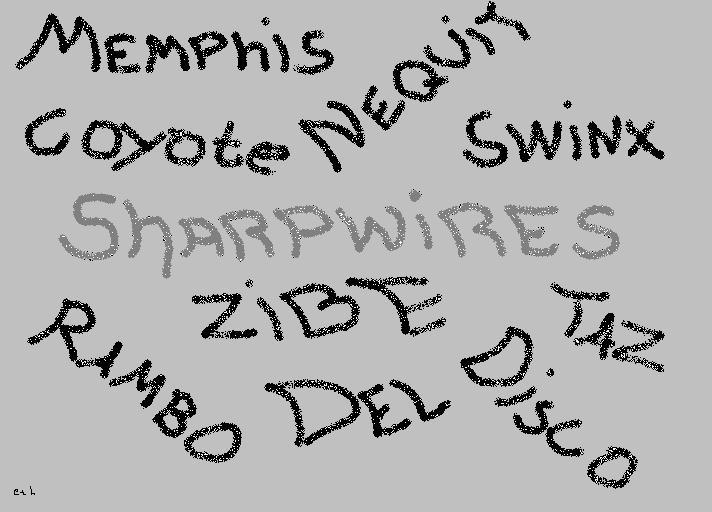 MEMPhiS
NEQUiT
COYOte
SWiNX
ShARPWiRES
ZiBE
TAZ
RAMBO
DEL
DiSCO